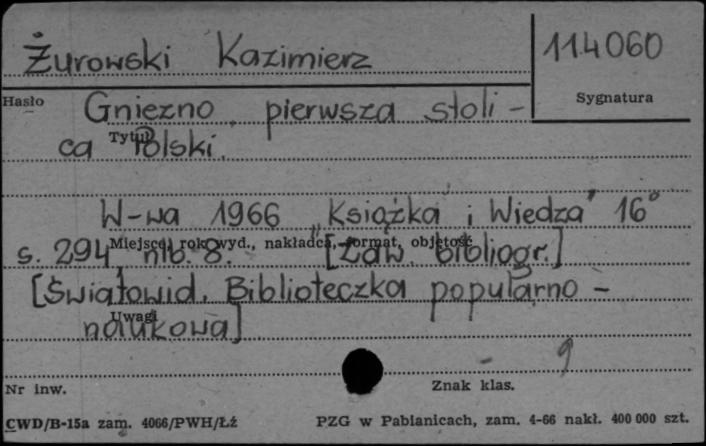 Żurowski Kazimierz
114060
Hasło
Sygnatura
Gniezno, pierwsza stoli-
Tytuł
ca Polski.
W-wa 1966 „Książka i Wiedza" 16°
Miejsce, rok wyd., nakładca, format, objętość
s. 294 nlb. 8. [Zaw. bibliogr.]
[Światowid. Biblioteczka popularno-
Uwagi
naukowa]
9
Nr inw.
Znak klas.
CWD/B-15a zam. 4066/PWH/Łż
PZG w Pabianicach, zam. 4-66 nakł. 400 000 szt.